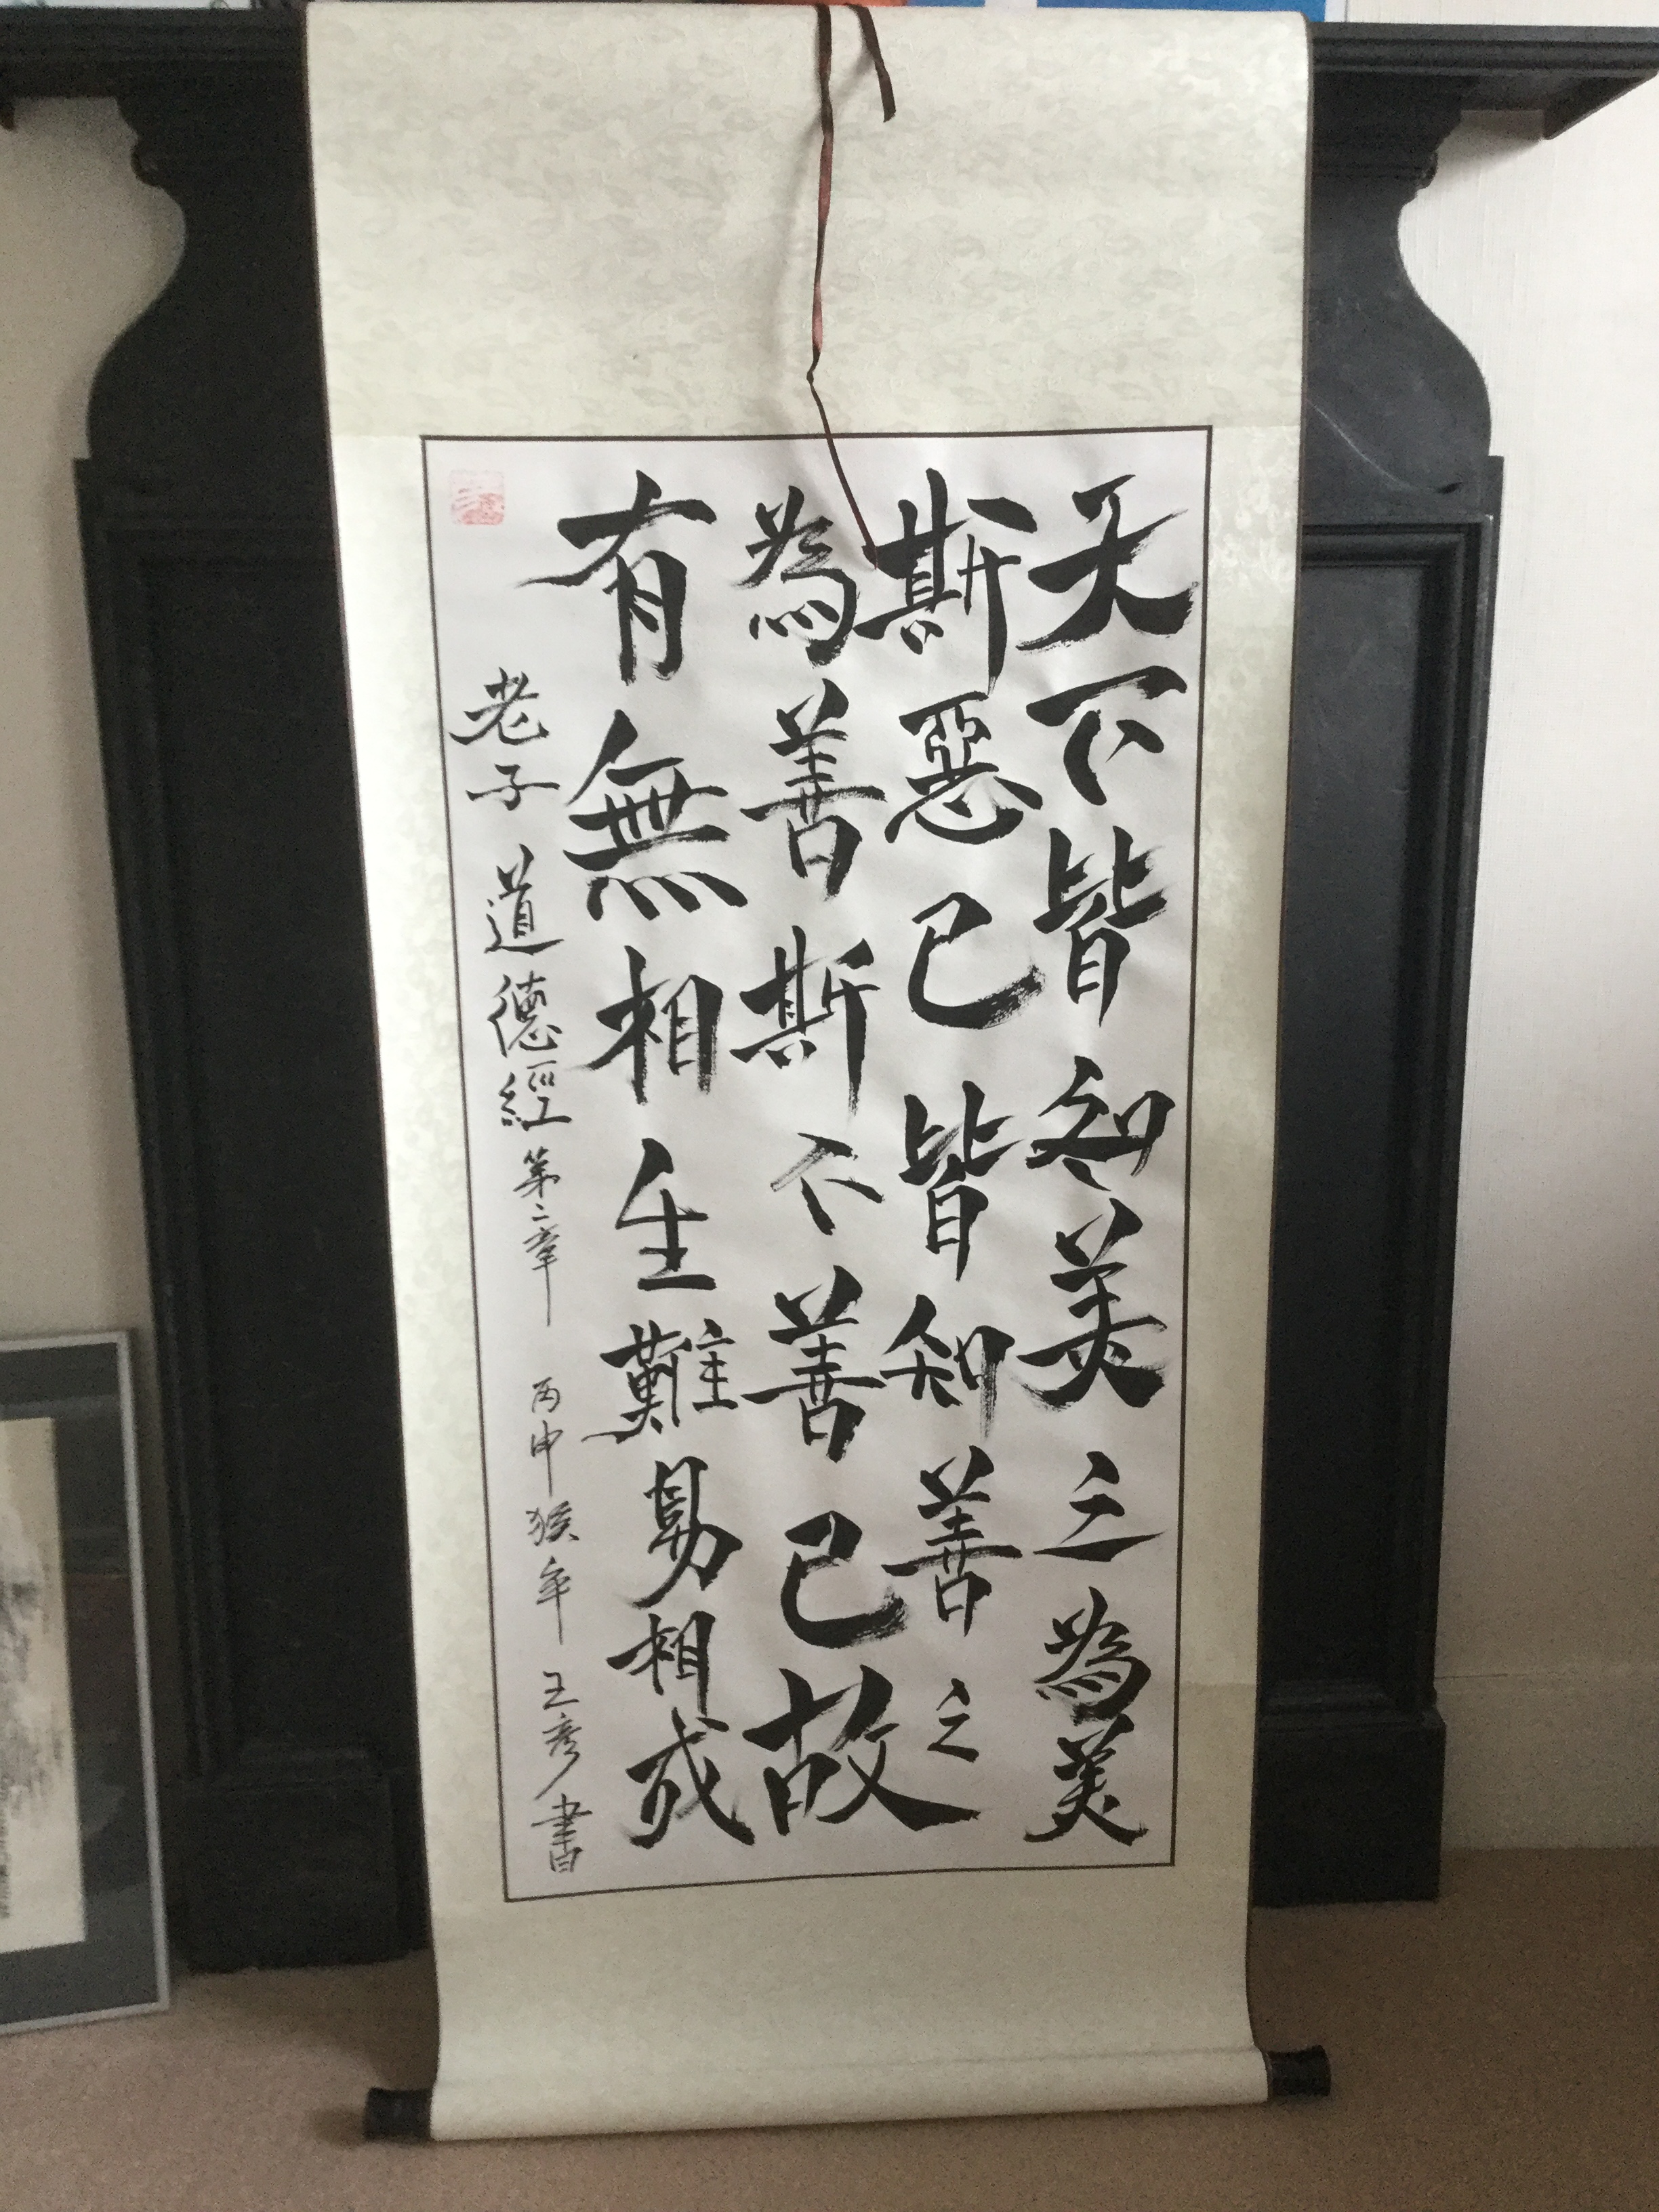 天下皆知美之為美
斯惡已皆知善之
為善斯不善已故
有無相生難易相成
老子道德經第二章 丙申猴年 王彥書